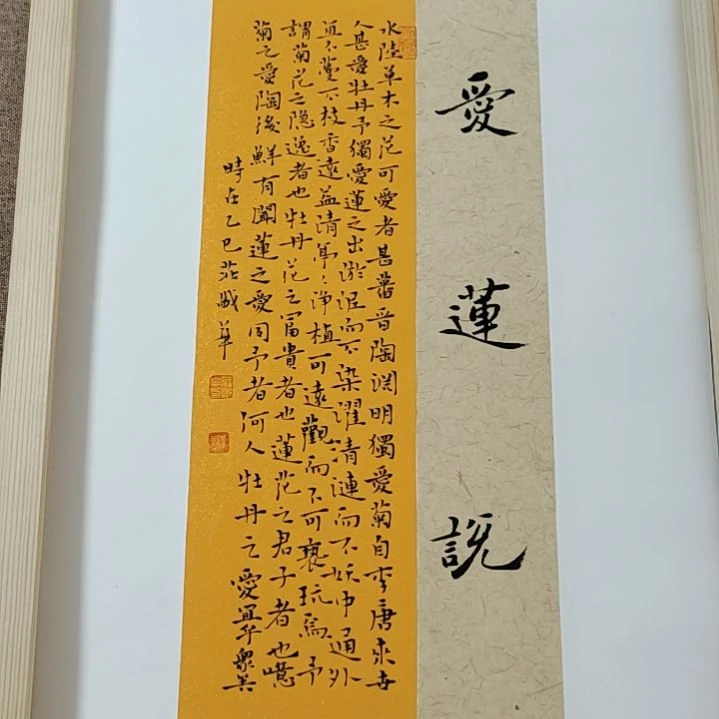 愛蓮說
水陸草木之花可愛者甚蕃晋陶渊明獨愛菊自李唐來世
人甚愛牡丹予獨愛蓮之出淤泥而不染濯清漣而不妖中通外
直不蔓不枝香遠益清亭〻淨植可遠觀而不可褻玩焉予
謂菊花之隐逸者也牡丹花之富貴者也蓮花之君子者也噫
菊之愛陶後鮮有聞蓮之愛同予者何人牡丹之愛宜乎衆矣
時在乙巳